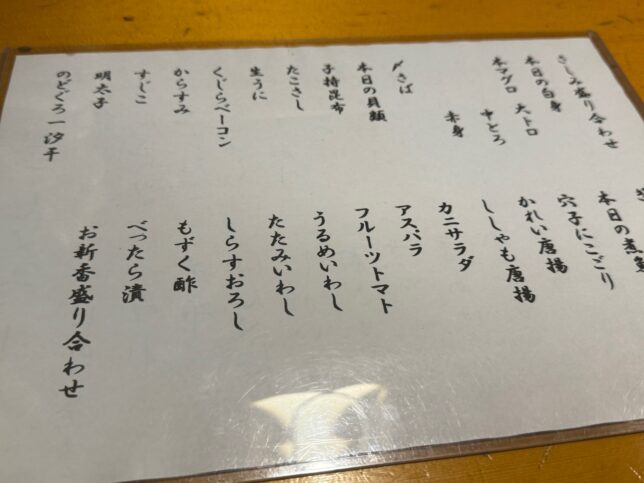 さしみ盛り合わせ
本日の白身
本マグロ 大トロ
中とろ
赤身
〆さば
本日の貝類
子持昆布
たこさし
生うに
くじらベーコン
からすみ
すじこ
明太子
のどぐろ一汐干
本日の煮
穴子にこごり
かれい唐揚
ししゃも唐揚
カニサラダ
アスパラ
フルーツトマト
うるめいわし
たたみいわし
しらすおろし
もずく酢
べったら漬
お新香盛り合わせ